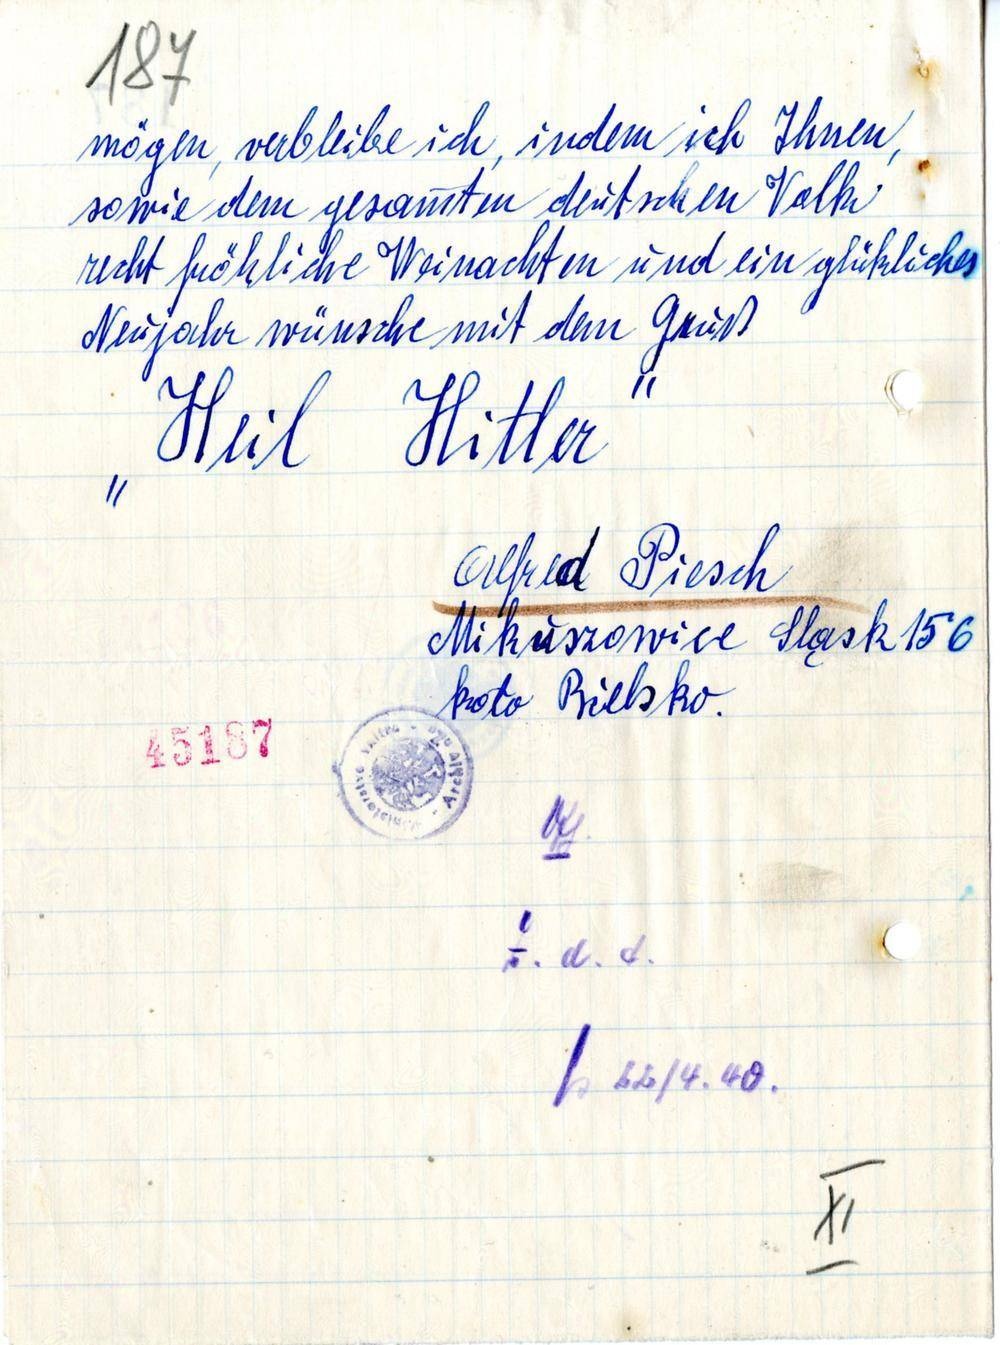 187
mögen, verbleibe ich, indem ich Ihnen,
sowie dem gesam̅ten deutschen Volke
recht fröhliche Weinachten und ein glükliches
Neujahr wünsche mit dem Gruß
„Heil Hitler"
Alfred Piesch
Mikuszowice Śląsk 156
koło Bielsko.
45187
Archiv
z. d. A.
22/4.40.
XI